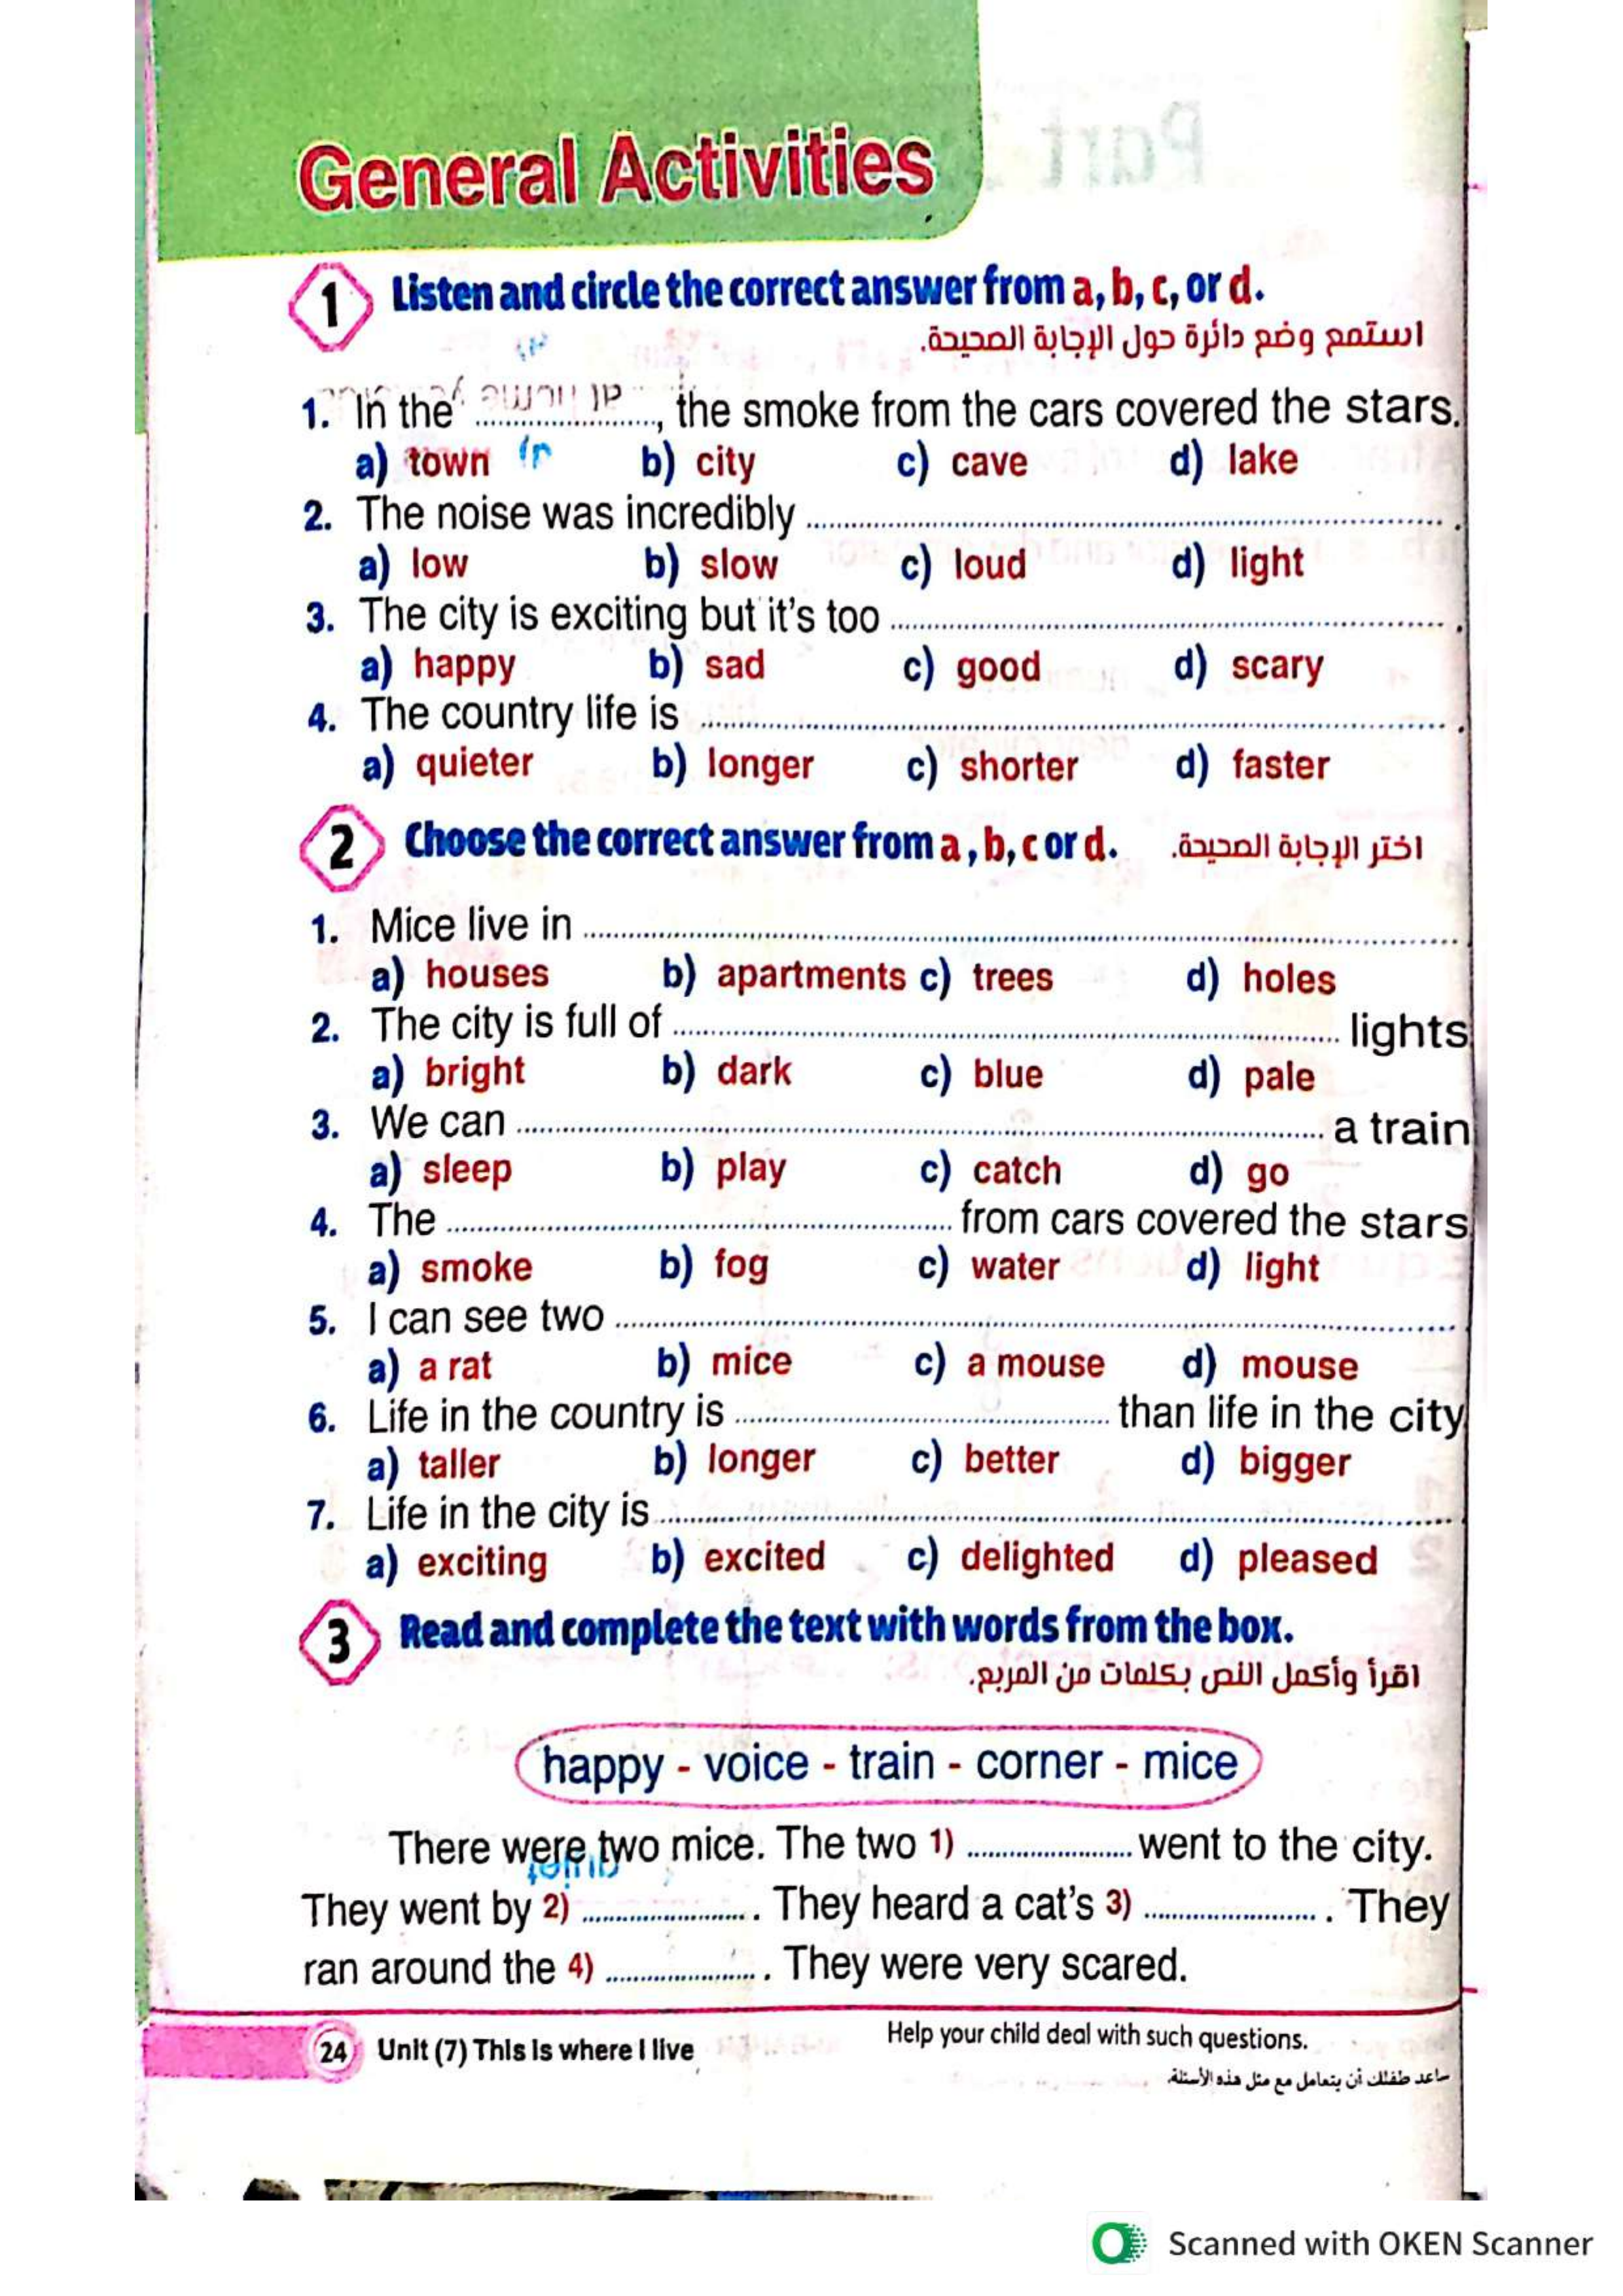 General Activities
1 Listen and circle the correct answer from a, b, c, or d.
استمع وضع دائرة حول الإجابة الصحيحة.
1. In the ...................., the smoke from the cars covered the stars.
a) town b) city c) cave d) lake
2. The noise was incredibly .................... .
a) low b) slow c) loud d) light
3. The city is exciting but it's too .................... .
a) happy b) sad c) good d) scary
4. The country life is .................... .
a) quieter b) longer c) shorter d) faster
2 Choose the correct answer from a, b, c or d. اختر الإجابة الصحيحة.
1. Mice live in ....................
a) houses b) apartments c) trees d) holes
2. The city is full of .................... lights
a) bright b) dark c) blue d) pale
3. We can .................... a train
a) sleep b) play c) catch d) go
4. The .................... from cars covered the stars
a) smoke b) fog c) water d) light
5. I can see two ....................
a) a rat b) mice c) a mouse d) mouse
6. Life in the country is .................... than life in the city
a) taller b) longer c) better d) bigger
7. Life in the city is ....................
a) exciting b) excited c) delighted d) pleased
3 Read and complete the text with words from the box.
اقرأ وأكمل النص بكلمات من المربع.
happy - voice - train - corner - mice
There were two mice. The two 1) .................... went to the city.
They went by 2) .................... . They heard a cat's 3) .................... . They
ran around the 4) .................... . They were very scared.
24 Unit (7) This is where I live
Help your child deal with such questions.
ساعد طفلك أن يتعامل مع مثل هذه الأسئلة.
Scanned with OKEN Scanner